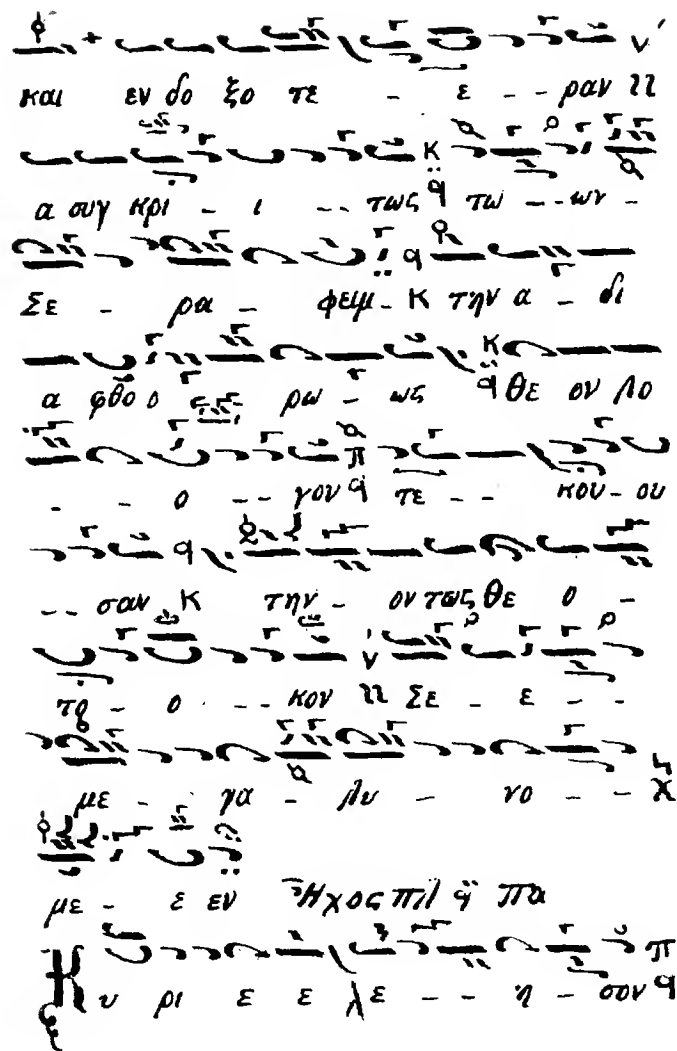 και εν δο ξο τε - ε - - ραν
α συγ κρι - ι - - τως τω - - ων -
Σε - ρα - φειμ - Κ την α - δι
α φθο ο ρω - ως θε ον λο
- - ο - - γον τε - - κου - ου
- - σαν Κ την - οντως θε ο -
τȣ - ο - - - κον Σε - ε - -
με - - γα - λυ - νο - -
με - ε εν Ἦχος πλ ᾳ Πα
Κυ ρι ε ε λε - - η - σον